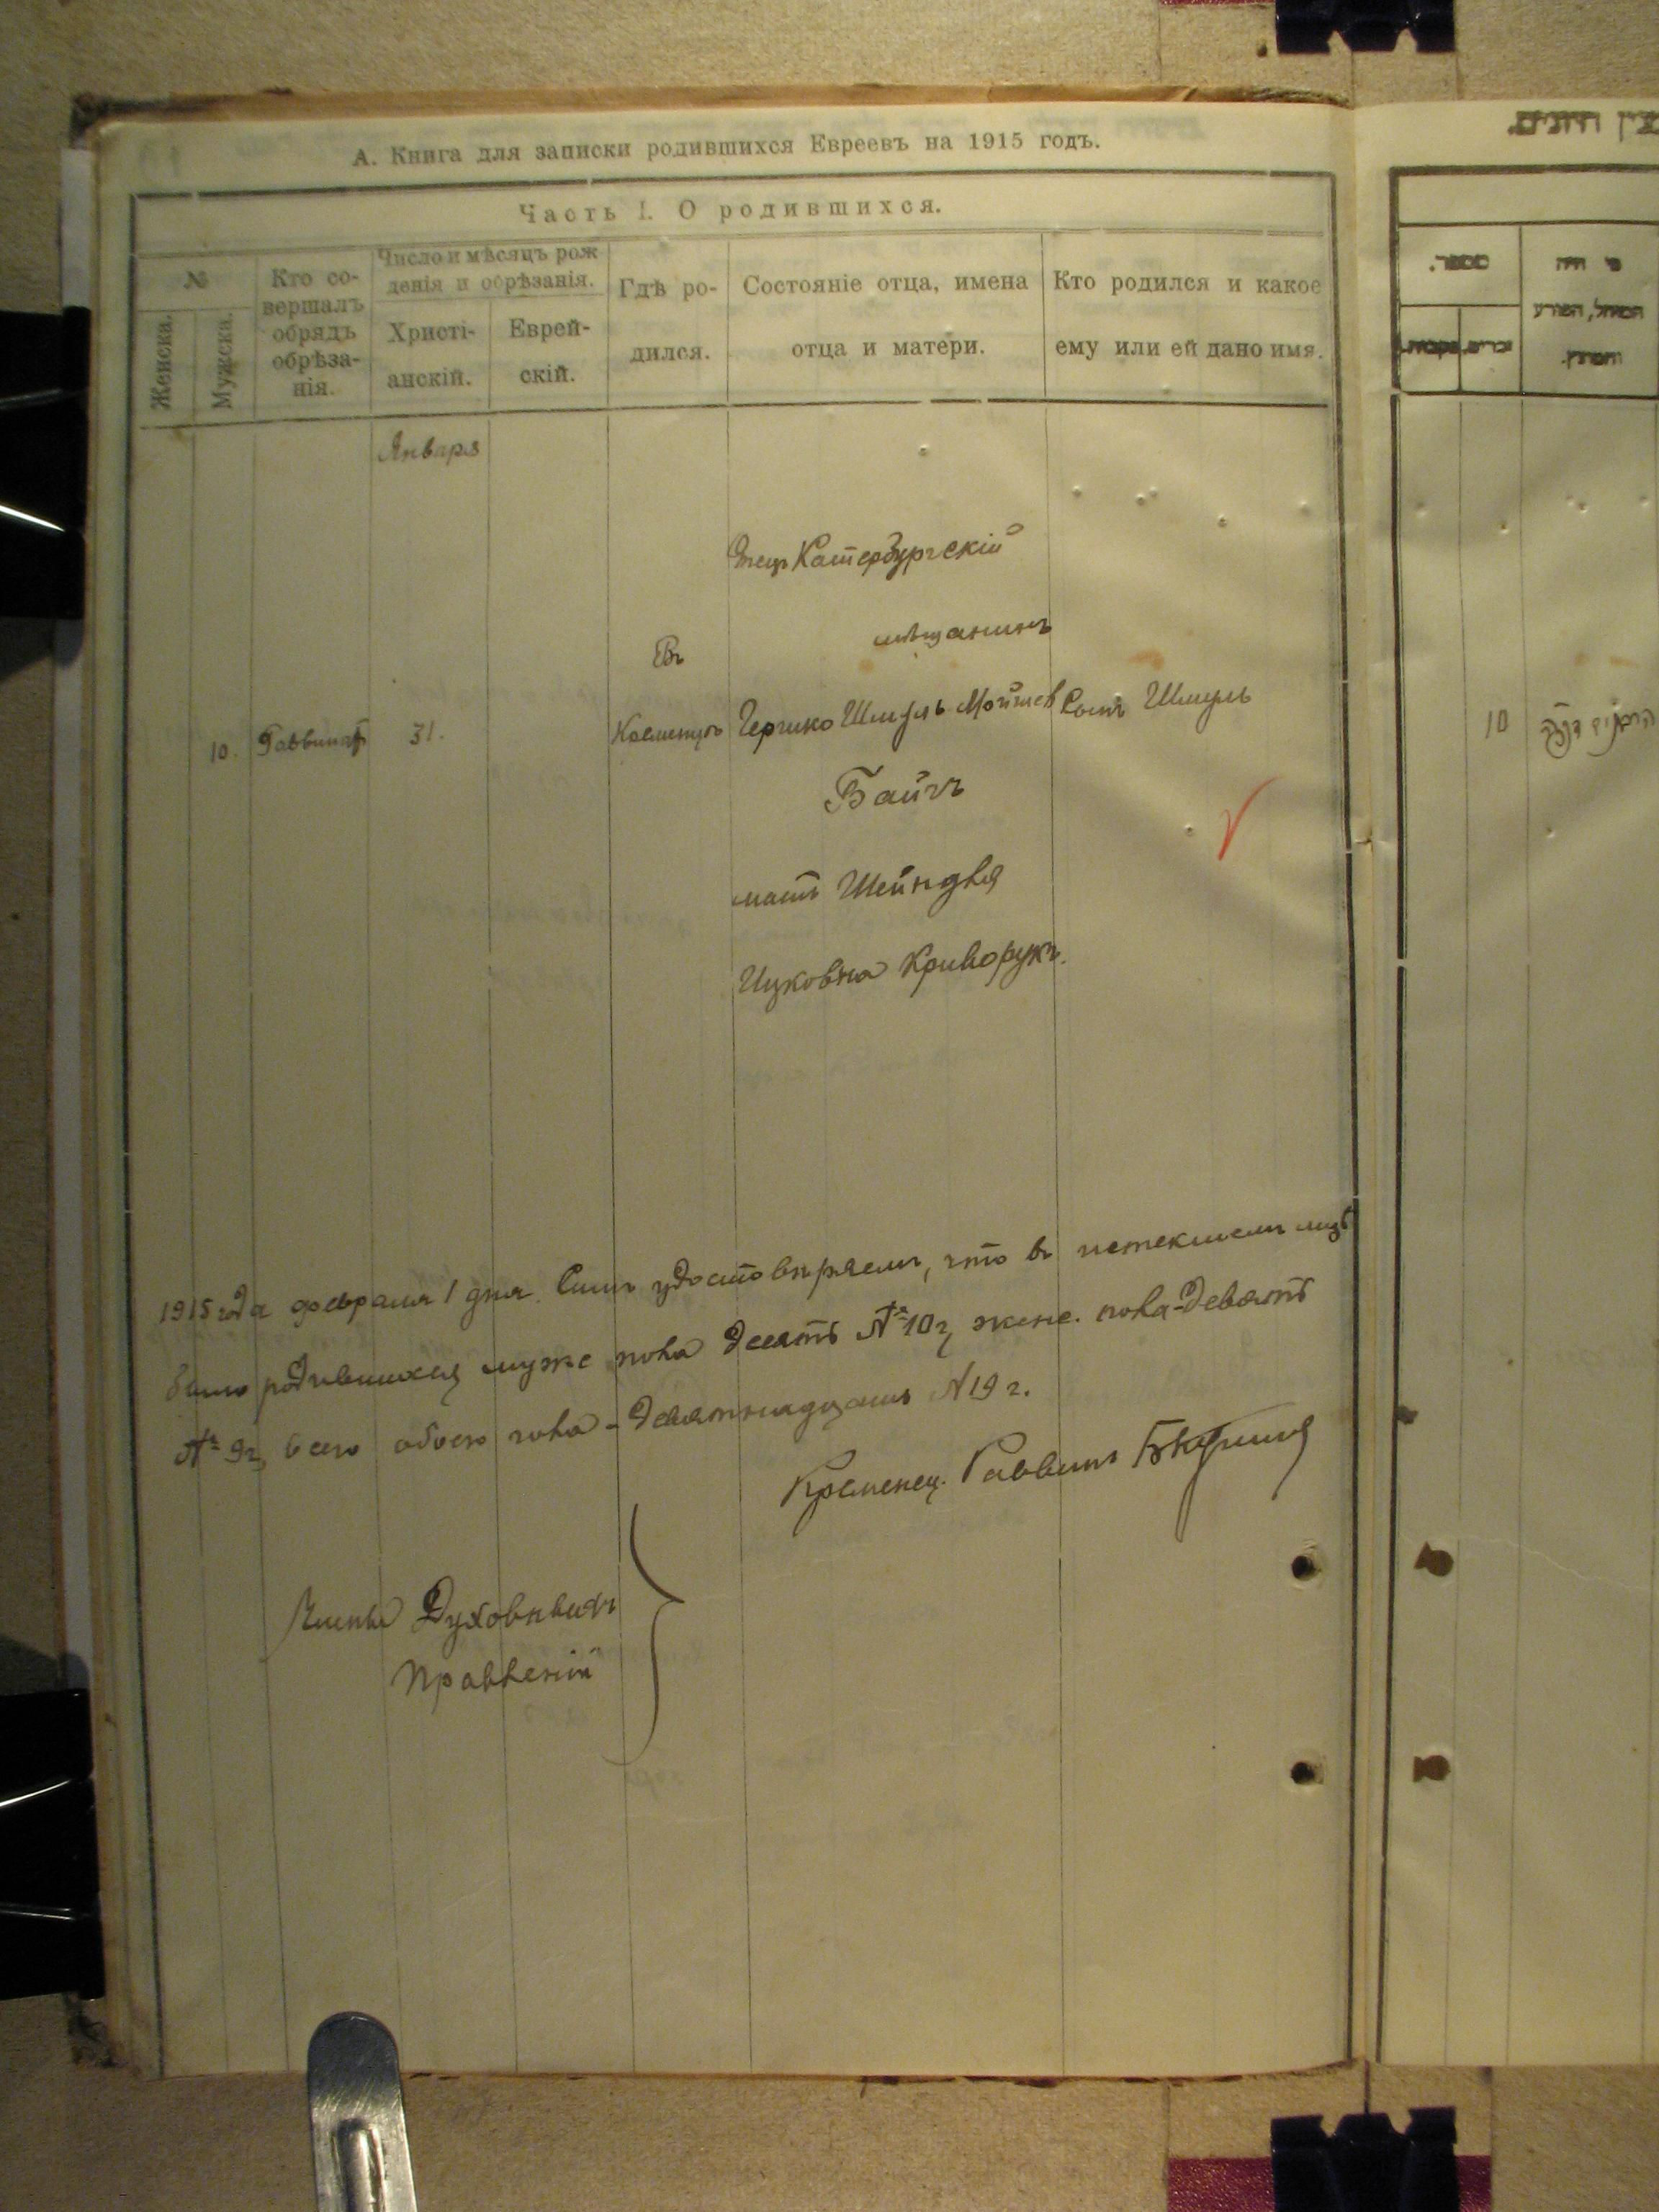 А. Книга для записки родившихся Евреевъ на 1915 годъ.
Часть I. О родившихся.
№
Женска.
Мужска.
Кто со-
вершалъ
обрядъ
обрѣза-
нія.
Число и мѣсяцъ рож
денія и обрѣзанія.
Христі-
анскій.
Еврей-
скій.
Гдѣ ро-
дился.
Состояніе отца, имена
отца и матери.
Кто родился и какое
ему или ей дано имя.
Января
Отецъ Катербургскій
мѣщанинъ
10.
31.
Въ
Гершко Шмуль Мойшев
Байгъ
мать Шейндля
Ицковна Криворукъ.
Сынъ Шмуль
1915 года февраля 1 дня. Симъ удостовѣряемъ, что въ истекшемъ мцѣ
было родившихся мужс пола десять № 10, женс. пола - девять
№ 9, всего обоего пола - девятнадцать № 19.
Кременец. Раввинъ
Члены Духовныхъ
Правленій
מספר.
זכרים.
נקבות.
מי היה
המוהל, הפורע
והמוצץ.
10